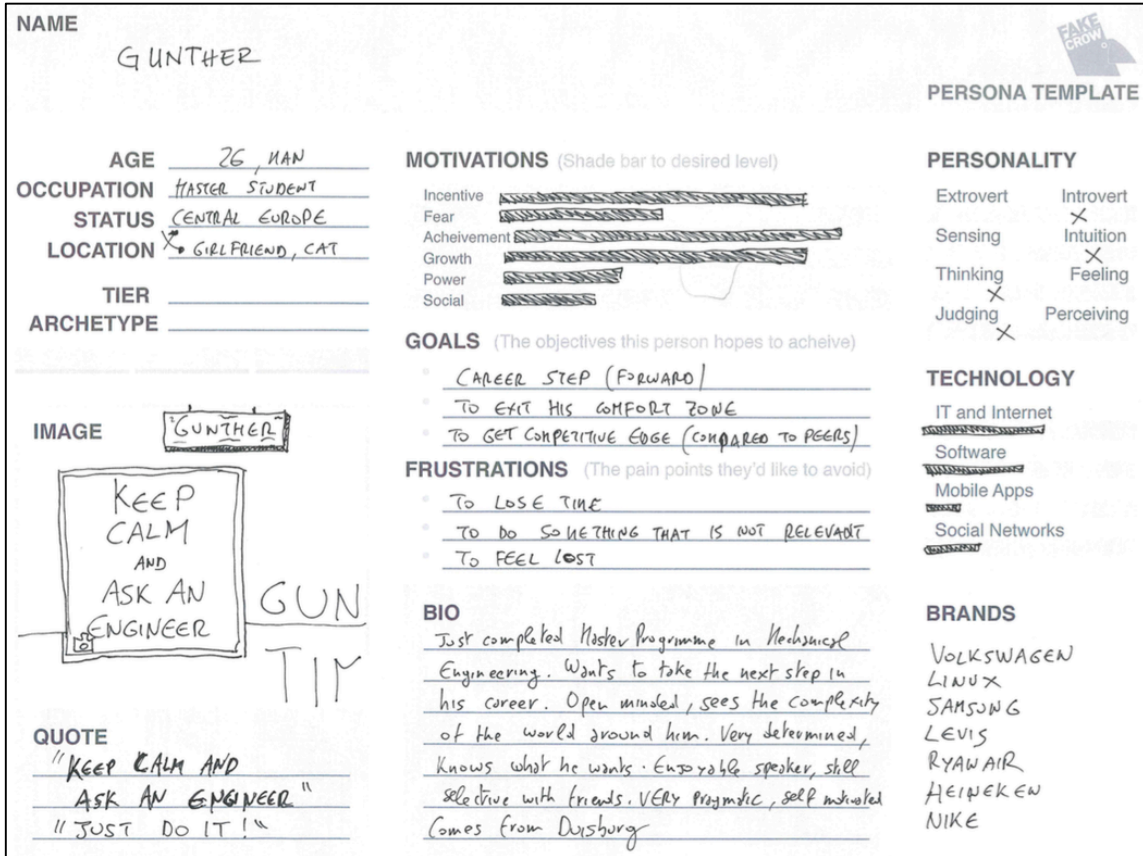 NAME
GUNTHER
FAKE
CROW
PERSONA TEMPLATE
AGE 26, MAN
OCCUPATION MASTER STUDENT
STATUS CENTRAL EUROPE
LOCATION GIRLFRIEND, CAT
TIER
ARCHETYPE
IMAGE
"GUNTHER"
KEEP
CALM
AND
ASK AN
ENGINEER
GUN
TIM
QUOTE
"KEEP CALM AND
ASK AN ENGINEER"
"JUST DO IT!"
MOTIVATIONS (Shade bar to desired level)
Incentive
Fear
Acheivement
Growth
Power
Social
GOALS (The objectives this person hopes to acheive)
CAREER STEP (FORWARD)
TO EXIT HIS COMFORT ZONE
TO GET COMPETITIVE EDGE (COMPARED TO PEERS)
FRUSTRATIONS (The pain points they'd like to avoid)
TO LOSE TIME
TO DO SOMETHING THAT IS NOT RELEVANT
TO FEEL LOST
BIO
Just completed Master Programme in Mechanical
Engineering. Wants to take the next step in
his career. Open minded, sees the complexity
of the world around him. Very determined,
knows what he wants. Enjoyable speaker, still
selective with friends. VERY Pragmatic, self motivated
Comes from Duisburg
PERSONALITY
Extrovert Introvert
Sensing Intuition
Thinking Feeling
Judging Perceiving
TECHNOLOGY
IT and Internet
Software
Mobile Apps
Social Networks
BRANDS
VOLKSWAGEN
LINUX
SAMSUNG
LEVIS
RYANAIR
HEINEKEN
NIKE